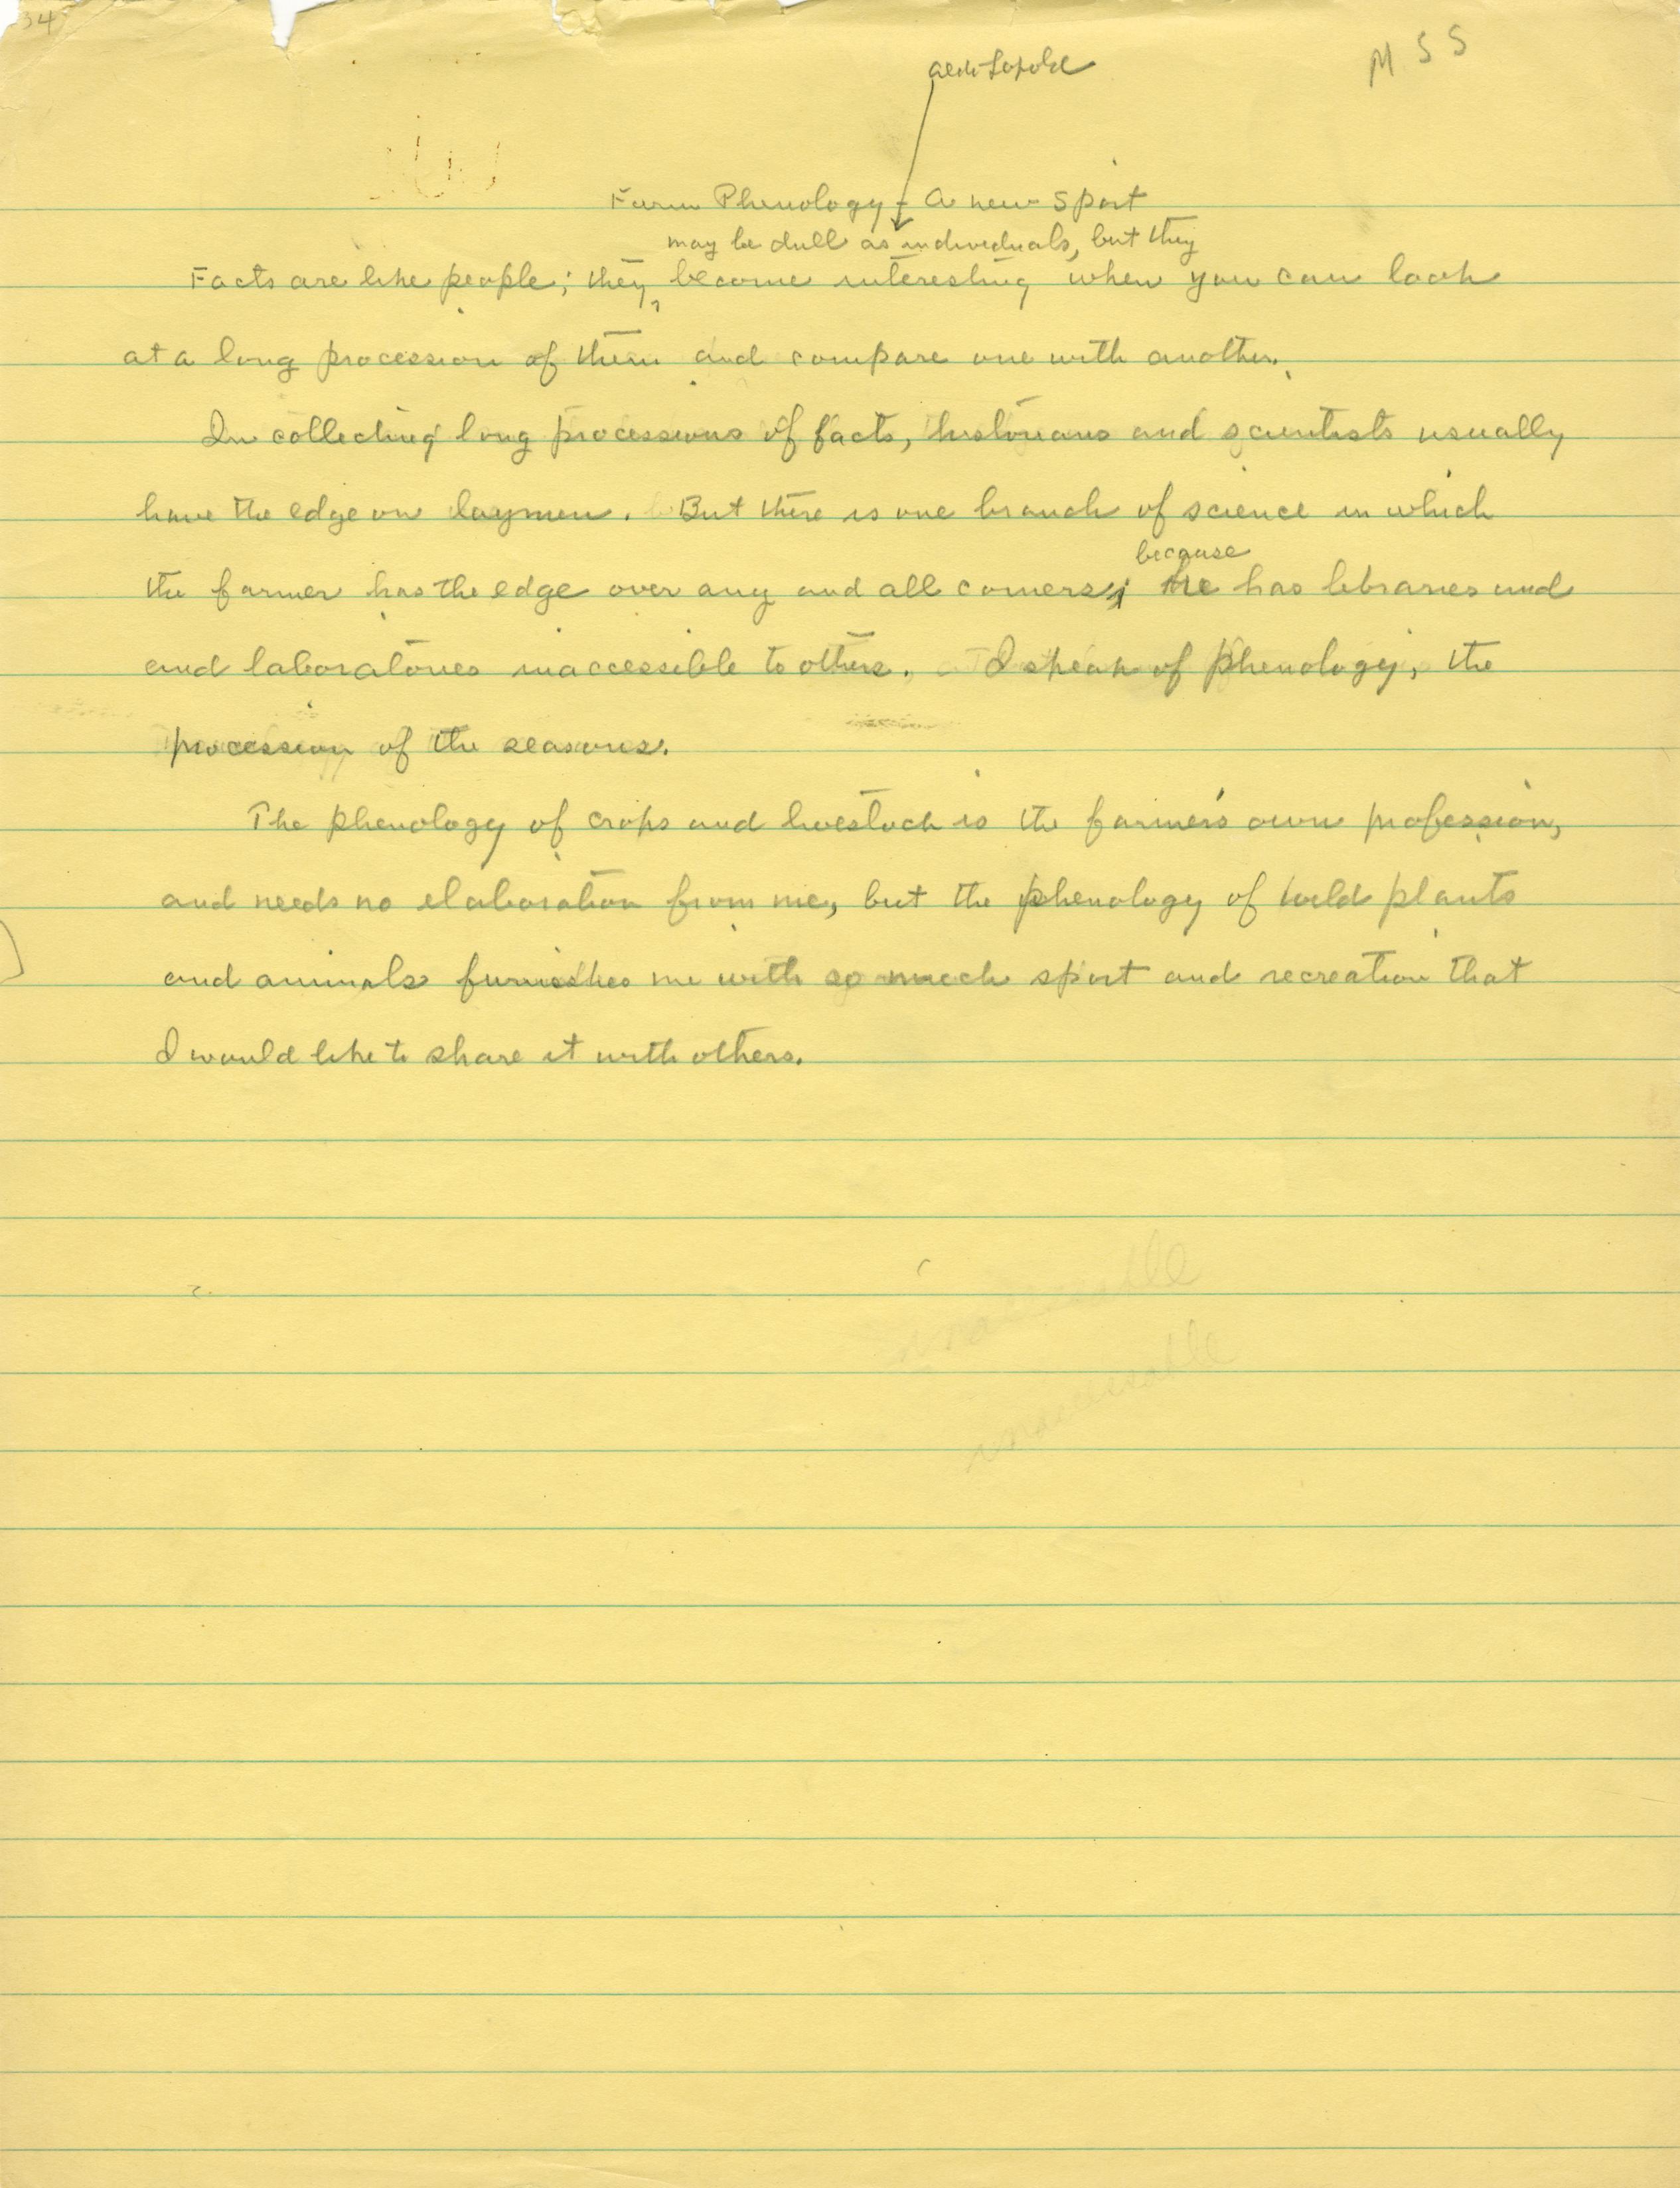 34
MSS
Aldo Leopold
Farm Phenology - A new Sport
may be dull as individuals, but they
Facts are like people; they become interesting when you can look
at a long procession of them and compare one with another.
In collecting long processions of facts, historians and scientists usually
have the edge on laymen. But there is one branch of science in which
because
the farmer has the edge over any and all comers; he has libraries and
and laboratories inaccessible to others. I speak of phenology, the
procession of the seasons.
The phenology of crops and livestock is the farmer's own profession,
and needs no elaboration from me, but the phenology of wild plants
and animals furnishes me with so much sport and recreation that
I would like to share it with others.